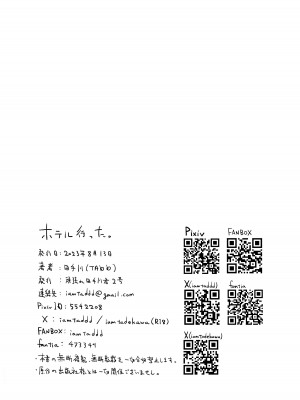 ホテル行った。
発行日：2023年8月13日
著者：田手川(TAbb)
発行：
連絡先：iamtaddd@gmail.com
Pixiv ID：5542208
X：iamtaddd / iamtadekawa(R18)
FANBOX：iamtaddd
fantia：477341
・本書の無断複製、無断転載を一切禁止します。
・原作の出版社様とは一切関係ございません。
Pixiv
FANBOX
X(iamtaddd)
fantia
X(iamtadekawa)